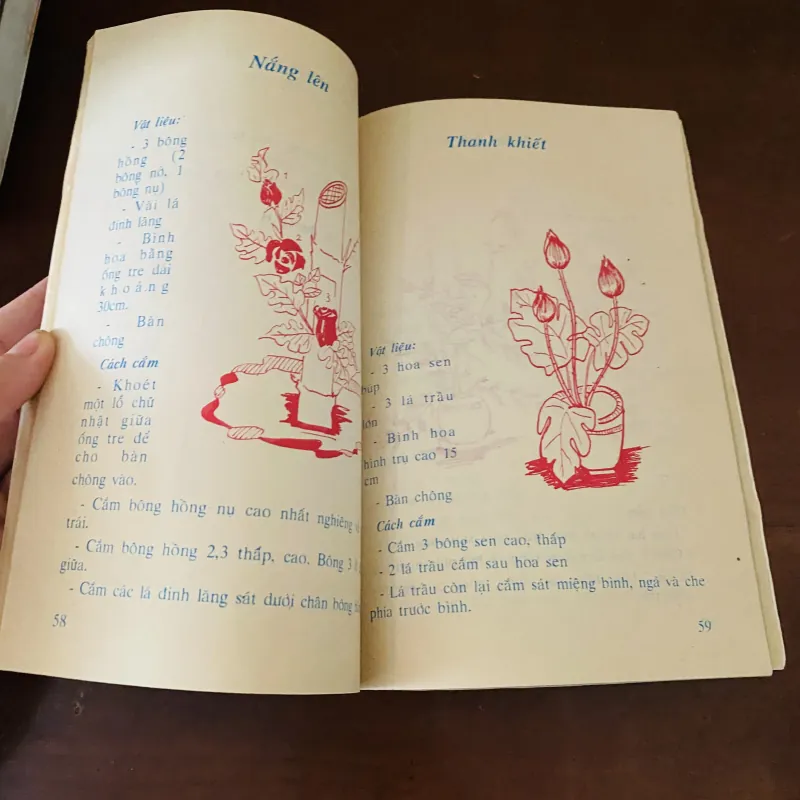 Nắng lên
Vật liệu:
- 3 bông
hồng (2
bông nở, 1
bông nụ)
- Vài lá
đinh lăng
- Bình
hoa bằng
ống tre dài
khoảng
30cm.
- Bàn
chông
Cách cắm
- Khoét
một lỗ chữ
nhật giữa
ống tre để
cho bàn
chông vào.
- Cắm bông hồng nụ cao nhất nghiêng
trái.
- Cắm bông hồng 2,3 thấp, cao. Bông 3
giữa.
- Cắm các lá đinh lăng sát dưới chân bông
58
1
2
3
Thanh khiết
Vật liệu:
- 3 hoa sen
búp
- 3 lá trầu
lớn
- Bình hoa
hình trụ cao 15
cm
- Bàn chông
Cách cắm
- Cắm 3 bông sen cao, thấp
- 2 lá trầu cắm sau hoa sen
- Lá trầu còn lại cắm sát miệng bình, ngả và che
phía trước bình.
59